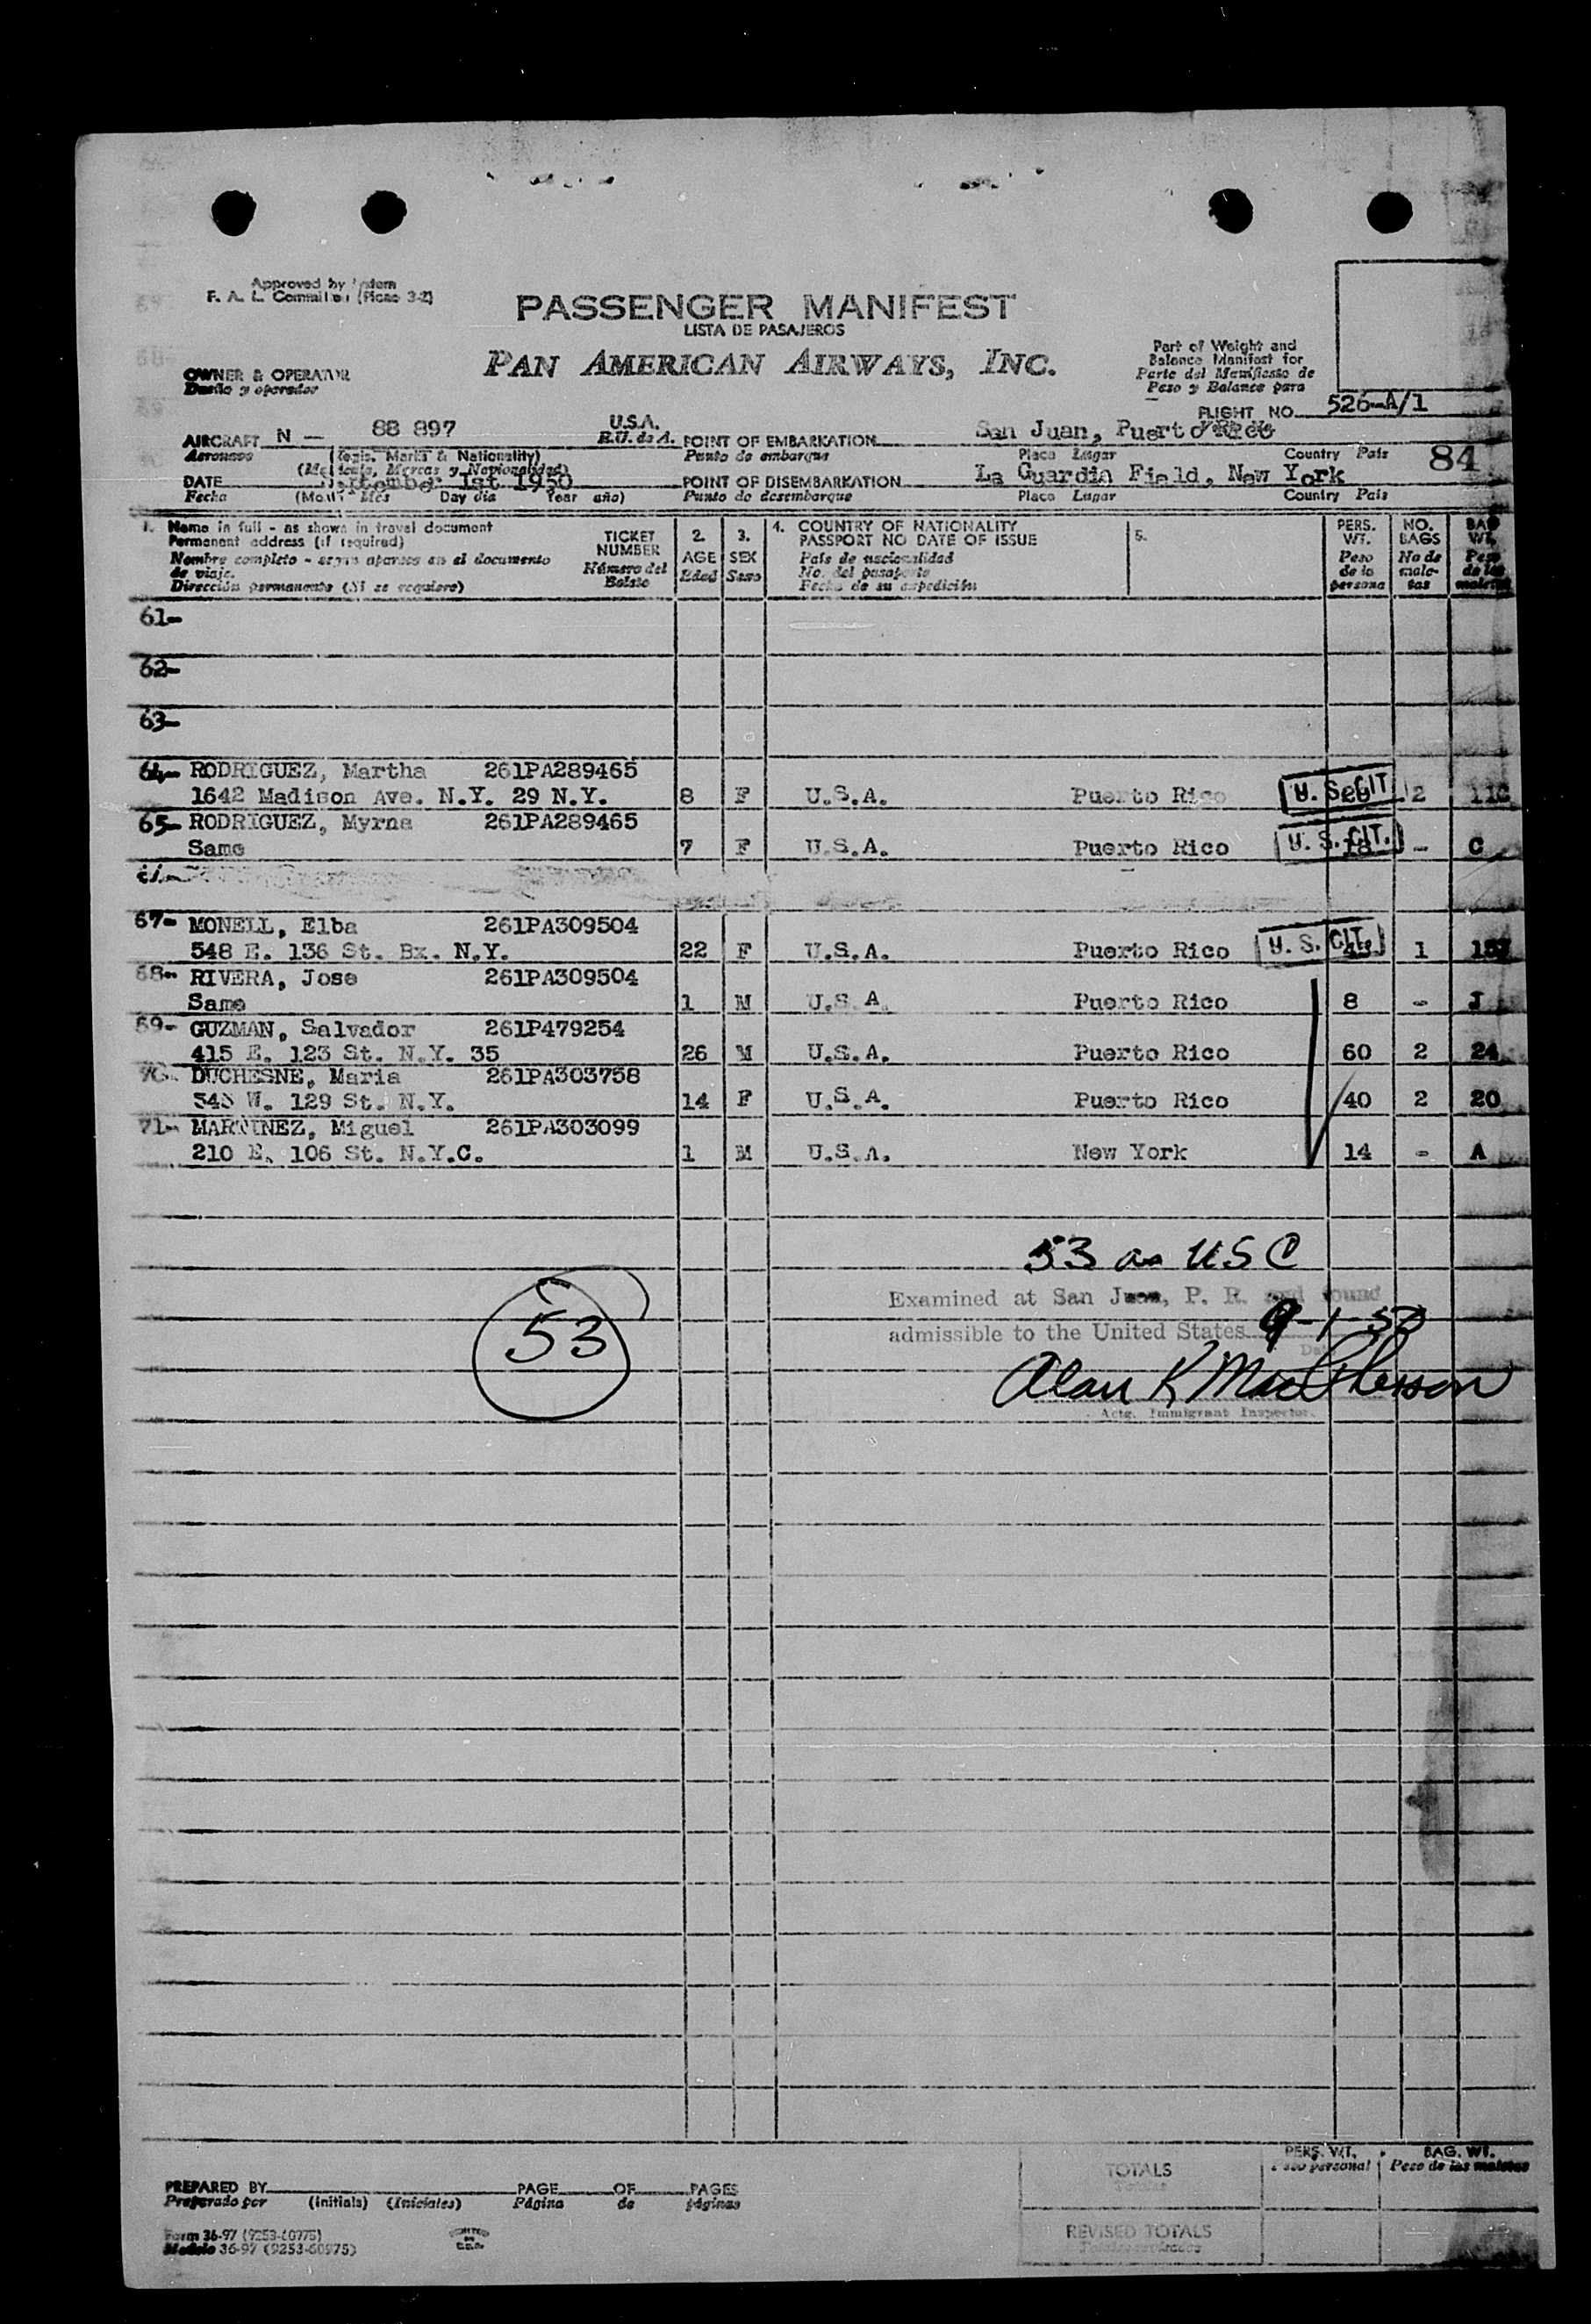 Approved by
F. A. L. Committee (Picao 3-2)
PASSENGER MANIFEST
LISTA DE PASAJEROS
PAN AMERICAN AIRWAYS, INC.
Part of Weight and
Balance Manifest for
Parte del Manifiesto de
Peso y Balance para
OWNER & OPERATOR
Dueño y operador
FLIGHT NO. 526-A/1
AIRCRAFT N - 88 897 U.S.A. E.U. de A.
Aeronave (Regis. Marks & Nationality)
(Matricula, Marcas y Nacionalidad)
POINT OF EMBARKATION San Juan, Puerto Rico
Punto de embarque Place Lugar Country Pais
84
DATE September 1st 1950
Fecha (Month Mes Day dia Year año)
POINT OF DISEMBARKATION La Guardia Field, New York
Punto de desembarque Place Lugar Country Pais
1. Name in full - as shown in travel document
Permanent address (if required)
Nombre completo - segun aparece en el documento
de viaje.
Dirección permanente (Si se requiere)
TICKET NUMBER
Número del Boleto
2. AGE Edad
3. SEX Sexo
4. COUNTRY OF NATIONALITY
PASSPORT NO DATE OF ISSUE
País de nacionalidad
No. del pasaporte
Fecha de su expedición
5.
PERS. WT.
Peso de la persona
NO. BAGS
No de maletas
BAG WT.
Peso de las maletas
61-
62-
63-
64- RODRIGUEZ, Martha 261PA289465
1642 Madison Ave. N.Y. 29 N.Y. 8 F U.S.A. Puerto Rico U. S. CIT. 2
65- RODRIGUEZ, Myrna 261PA289465
Same 7 F U.S.A. Puerto Rico U. S. CIT. - C
67- MONELL, Elba 261PA309504
548 E. 136 St. Bx. N.Y. 22 F U.S.A. Puerto Rico U. S. CIT. 1
68- RIVERA, Jose 261PA309504
Same 1 M U.S.A. Puerto Rico 8 - J
69- GUZMAN, Salvador 261P479254
415 E. 123 St. N.Y. 35 26 M U.S.A. Puerto Rico 60 2 24
70- DUCHESNE, Maria 261PA303758
545 W. 129 St. N.Y. 14 F U.S.A. Puerto Rico 40 2 20
71- MARTINEZ, Miguel 261PA303099
210 E. 106 St. N.Y.C. 1 M U.S.A. New York 14 - A
53 as USC
53
Examined at San Juan, P. R. and found
admissible to the United States 9-1-50
Date
Alan K MacPherson
Actg. Immigrant Inspector.
PREPARED BY (Initials) PAGE OF PAGES
Preparado por (Iniciales) Página de páginas
TOTALS
Totales
PERS. WT.
Peso personal
BAG. WT.
Peso de las maletas
REVISED TOTALS
Form 36-97 (9253-60975)
Modelo 36-97 (9253-60975)
PRINTED IN U.S.A.